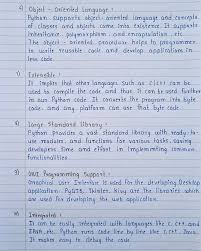 6) Object - Oriented Language :
Python supports object-oriented language and concepts
of classes and objects come into existence. It supports
inheritance, polymorphism and encapsulation, etc.
The object - oriented procedure helps to programmer
to write reusable code and develop applications in
less code.
7) Extensible :
It implies that other languages such as C/C++ can be
used to compile the code and thus it can be used further
in our Python code. It converts the program into byte
code, and any platform can use that byte code.
8) Large Standard Library :
Python provides a vast standard library with ready-to-
use modules and functions for various tasks, saving
developers time and effort in implementing common
functionalities.
9) GUI Programming Support :
Graphical User Interface is used for the developing Desktop
application. PyQT5, Tkinter, Kivy are the libraries which
are used for developing the web application.
10) Integrated :
It can be easily integrated with languages like C, C++ and
Java, etc. Python runs code line by line like C, C++, Java.
It makes easy to debug the code